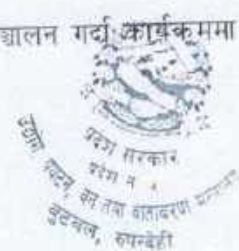 ञ्चालन गर्दा कार्यक्रममा
प्रदेश सरकार
प्रदेश नं
उद्योग पर्यटन, वन तथा वातावरण मन्त्रालय
बुटवल, रुपन्देही